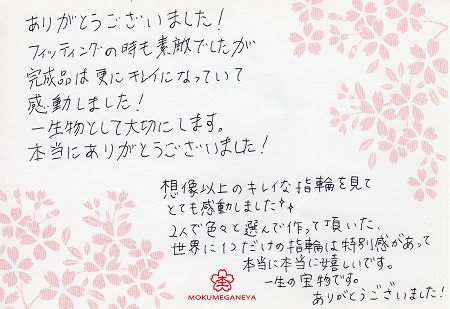 ありがとうございました!
フィッティングの時も素敵でしたが
完成品は更にキレイになっていて
感動しました!
一生物として大切にします。
本当にありがとうございました!
想像以上のキレイな指輪を見て
とても感動しました
2人で色々と選んで作って頂いた、
世界に1つだけの指輪は特別感があって
本当に本当に嬉しいです。
一生の宝物です。
ありがとうございました!
MOKUMEGANEYA